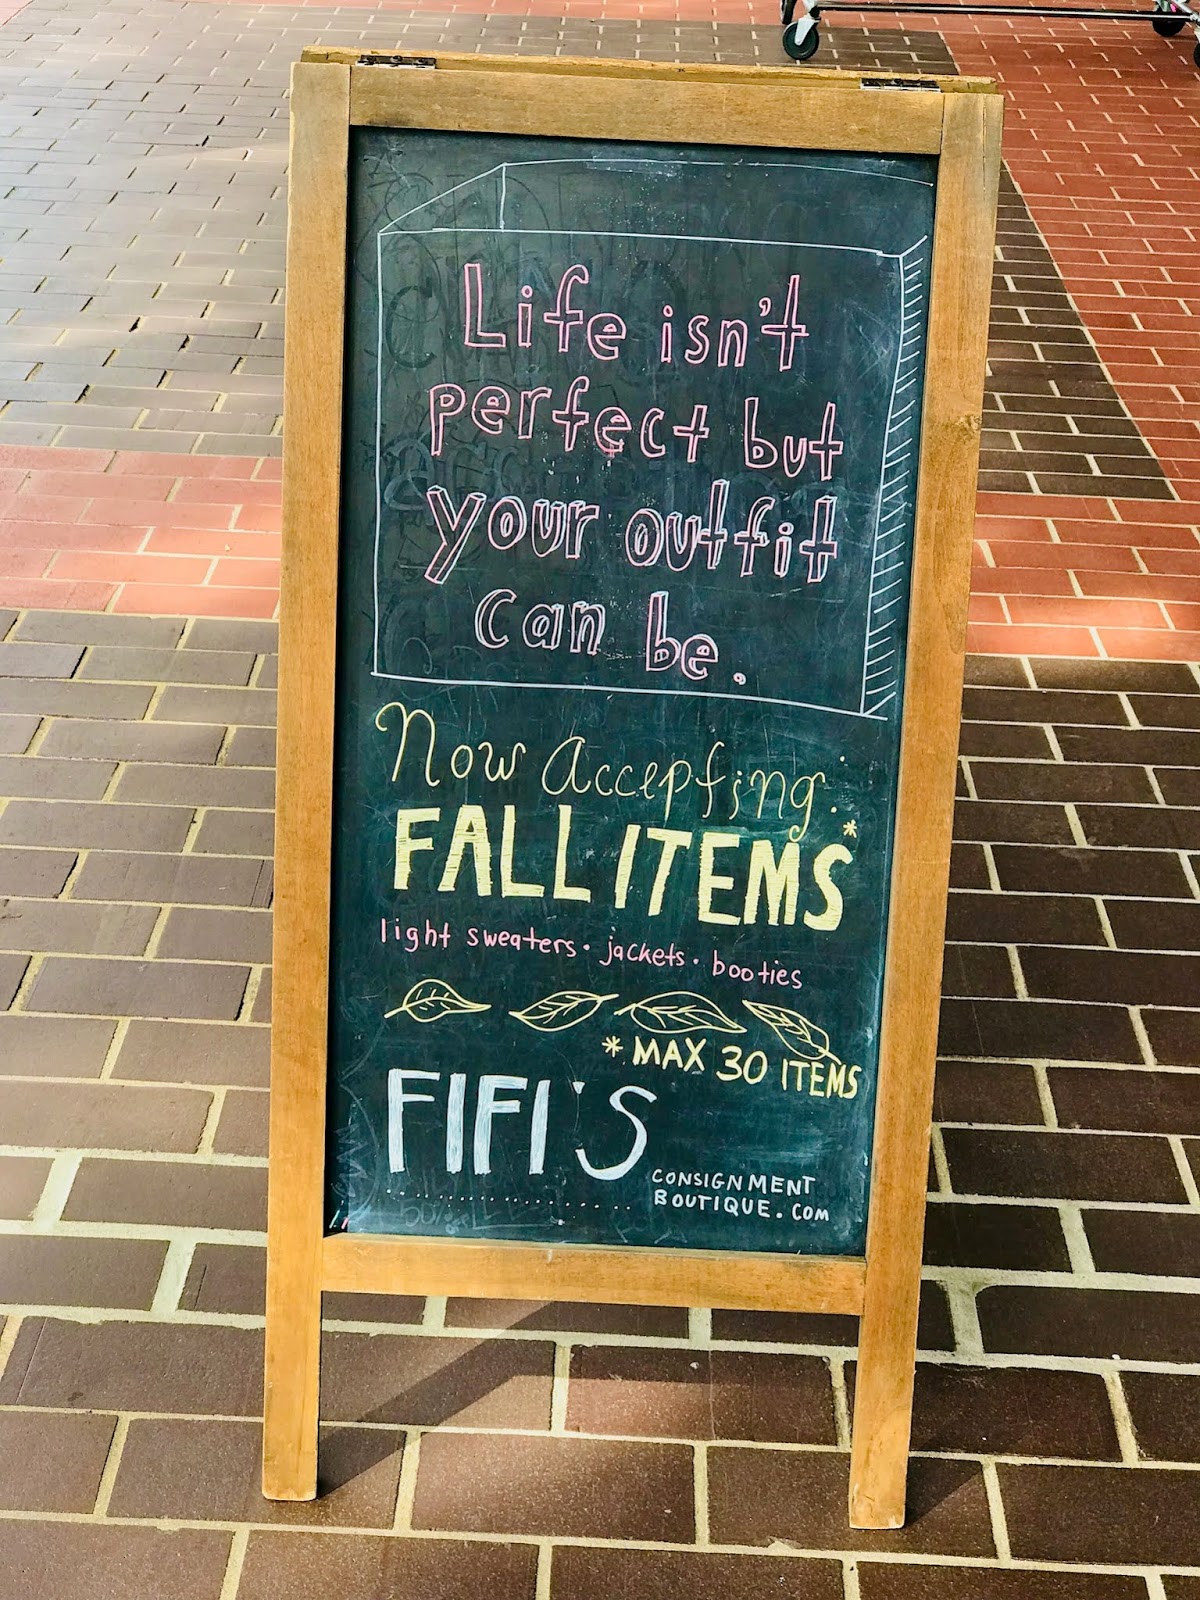 Life isn't
perfect but
your outfit
can be.
Now Accepting:
FALL ITEMS*
light sweaters · jackets · booties
* MAX 30 ITEMS
FIFI'S
CONSIGNMENT
BOUTIQUE.COM